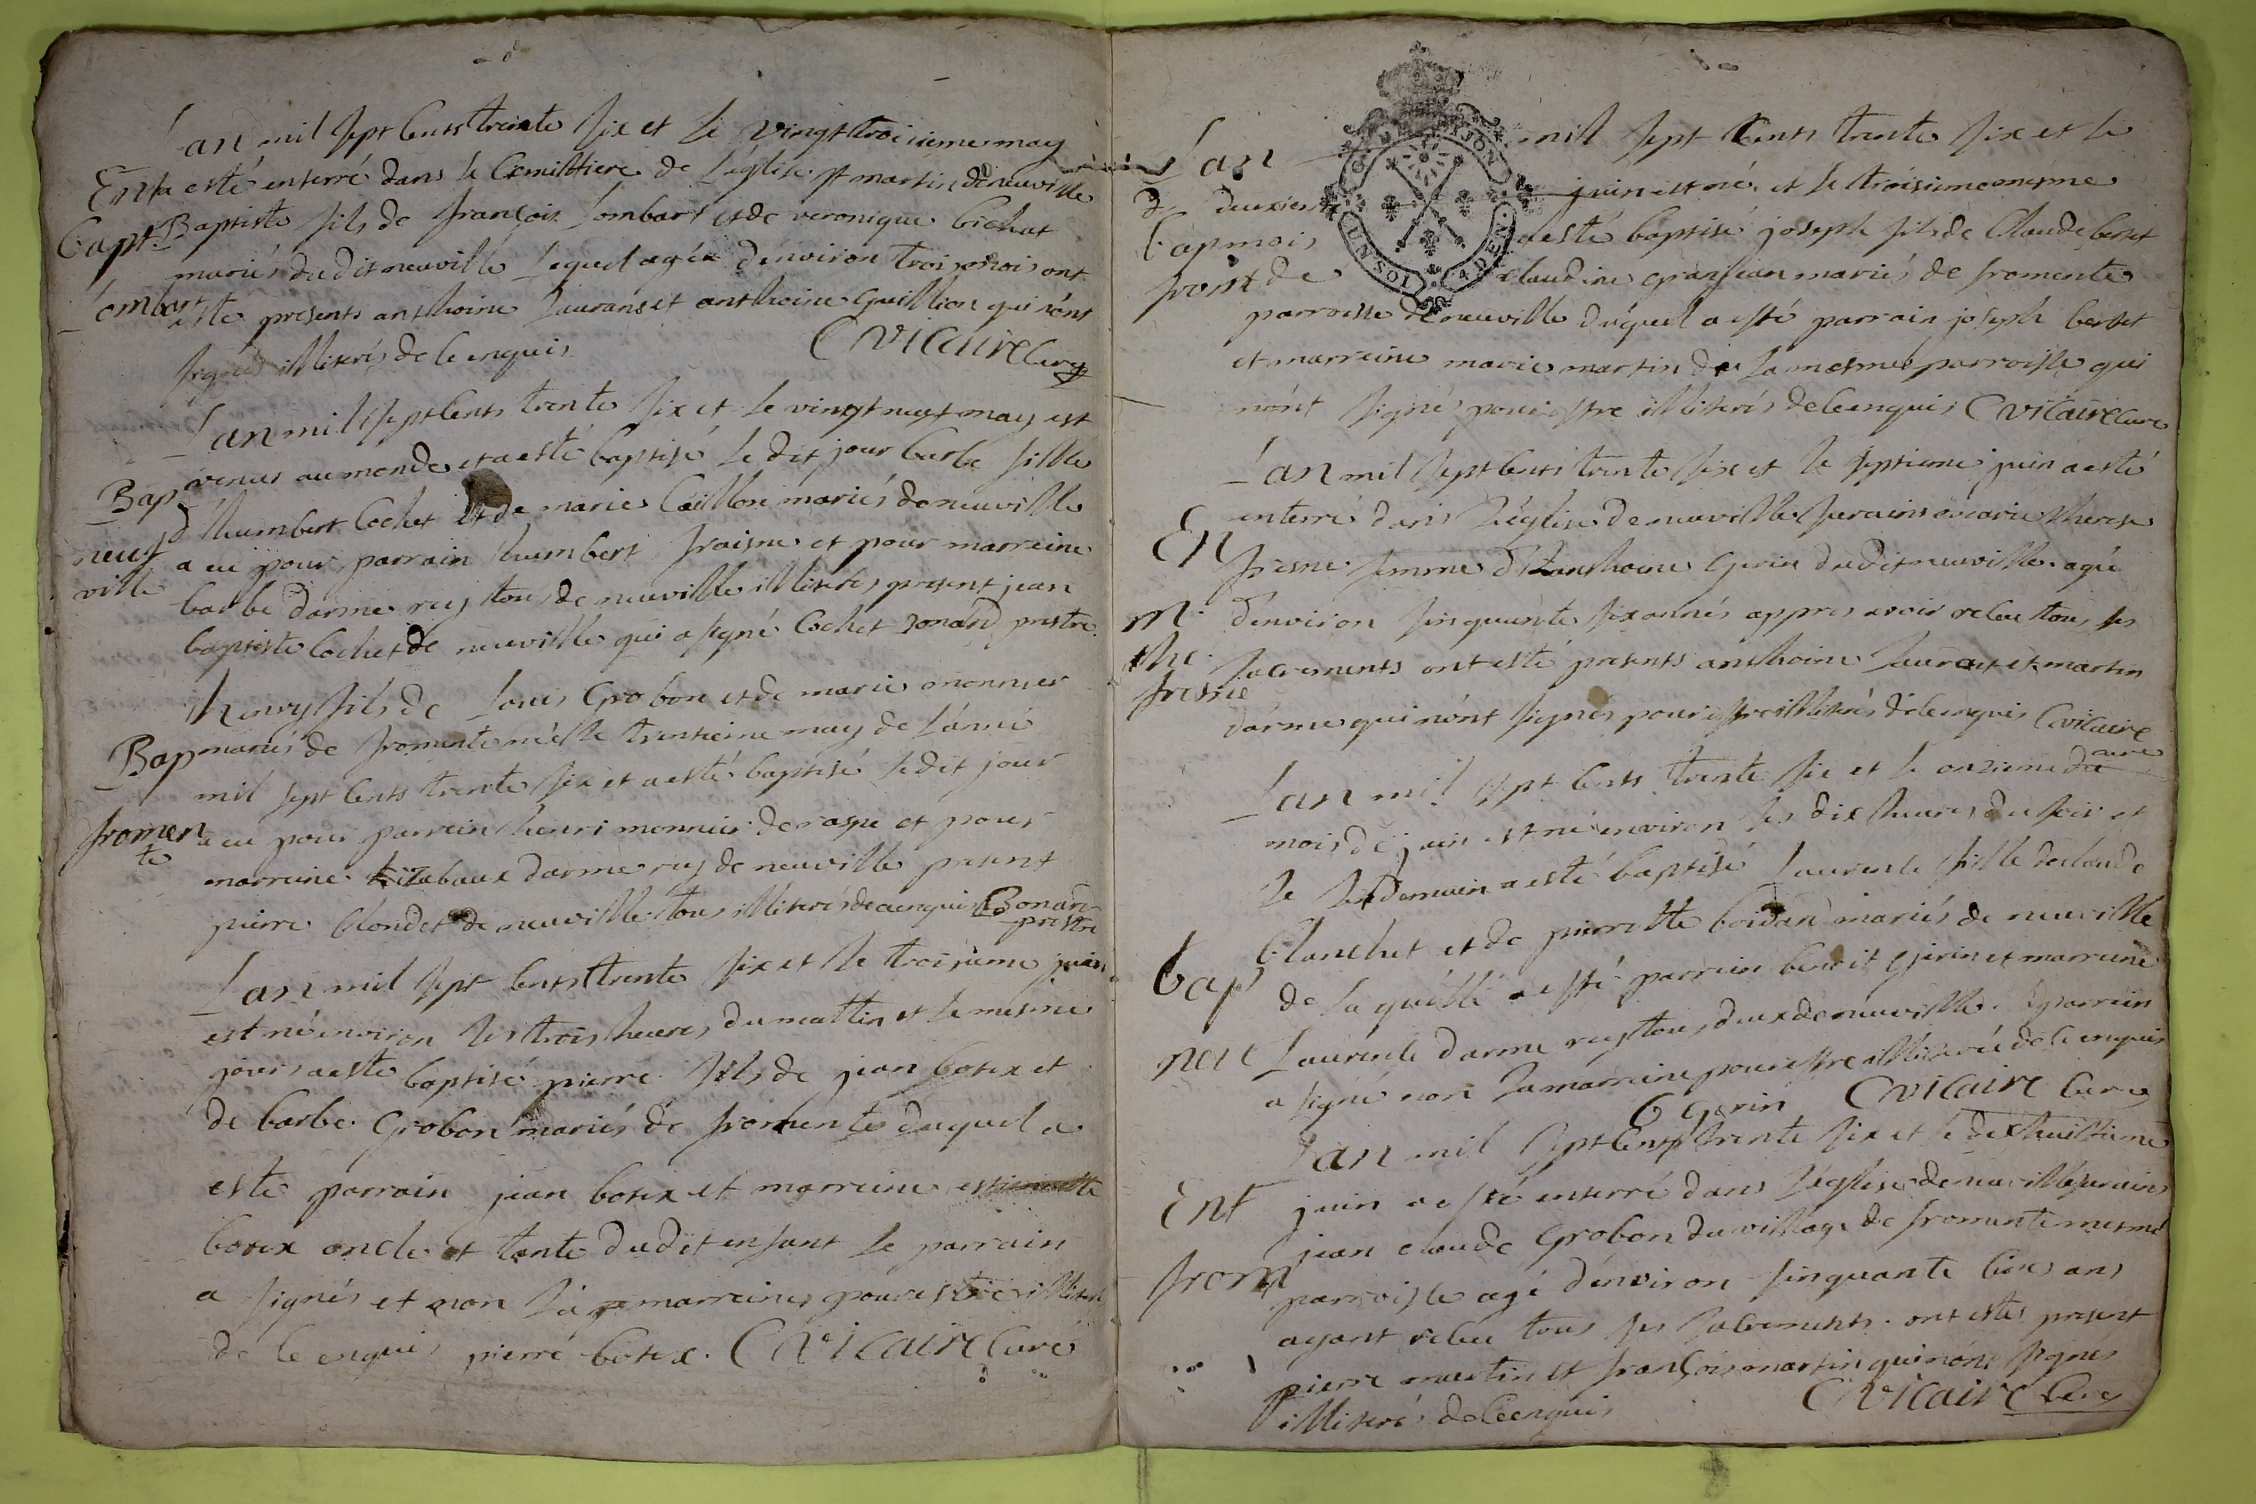 L'an mil sept cents trente six et le vingt troisieme may
Ent a esté enterré dans le Cemiltiere de L'eglise st martin de neuville
bapt. Baptiste fils de françois Lombart et de veronique bichat
mariés du dit neuville Lequel agée d'environ trois mois ont
Lombart esté presents anthoine Laurans et anthoine Guillion qui n'ont
signés illiterés de ce enquis CVicaire Curé
L'an mil sept cents trente six et le vingt neuf may est
Bap venus au monde et a esté baptisé le dit jour barbe fille
d'humbert Cochet et de marie Caillion mariés de neuville
neuf a eu pour parrain humbert fraisne et pour marraine
ville barbe darme rey tous de neuville illiterés present jean
baptiste Cochet de neuville qui a signé Cochet bonand prestre
henry fils de Louis Grobon et de marie monnier
Bap mariés de fromente né le trentieme may de L'année
mil sept cents trente six et a esté baptisé le dit jour
fromen a eu pour parrain henri monnier de raspe et pour
te marraine darme rey de neuville present
pierre blondet de neuville tous illiterés de ce enquis Bonand
prestre
L'an mil sept cents trente six et le troisieme juin
est né environ les trois heures du mattin et le mesme
jour a esté baptisé pierre fils de jean botex et
de barbe Grobon mariés de fromente duquel a
esté parrain jean botex et marreine estiennette
botex oncle et tante du dit enfant le parrain
a signés et non la marreine pour estre illiterée
de ce enquis pierre botex. CVicaire Curé
L'an mil sept cents trente six et le
d. deuxieme juin est né et le troisieme mesme
bap mois a esté baptisé joseph fils de Claude berset
froment de claudine mariés de fromente
parroisse de neuville duquel a esté parrain joseph berset
et marreine marie martin de la mesme parroisse qui
n'ont signés pour estre illiterés de ce enquis CVicaire Curé
L'an mil sept cents trente six et le septieme juin a esté
enterré dans L'église de neuville marie therese
En fresne femme d'anthoine Gerin du dit neuville agée
m. d'environ sinquante six années appres avoir receu tous ses
the. sacrements ont esté presents anthoine Laurent et martin
fresne darme qui n'ont signés pour estre illiterés de ce enquis CVicaire
curé
L'an mil sept cents trente six et le onzieme du
mois de juin est né environ les dix heures du soir et
le lendemain a esté baptisé Laurente fille de claude
bap blanchet et de pierrette boidan mariés de neuville
de la quelle a esté parrain benoit Gerin et marreine
neu Laurente darme rey tous deux de neuville. Le parrain
a signé non la marreine pour estre illiterée de ce enquis
B Gerin CVicaire Curé
L'an mil sept cents trente six et le dix huittieme
Ent juin a esté enterré dans L'église de neuville
jean claude Grobon du village de fromente mesme
from parroisse agé d'environ sinquante cinq ans
ayant receu tous ses sacrements. ont esté present
pierre martin et françois martin qui n'ont signés
illiterés de ce enquis CVicaire Curé
UN SOL 4 DEN.